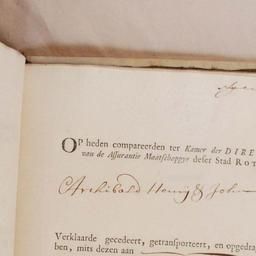 OP heden compareerden ter Kamer der DIRE
van de Assurantie Maatschappye deser Stad ROT
Archibald Henry & John
Verklaarde gecedeert, getransporteert, en opgedra
ben, mits dezen aan